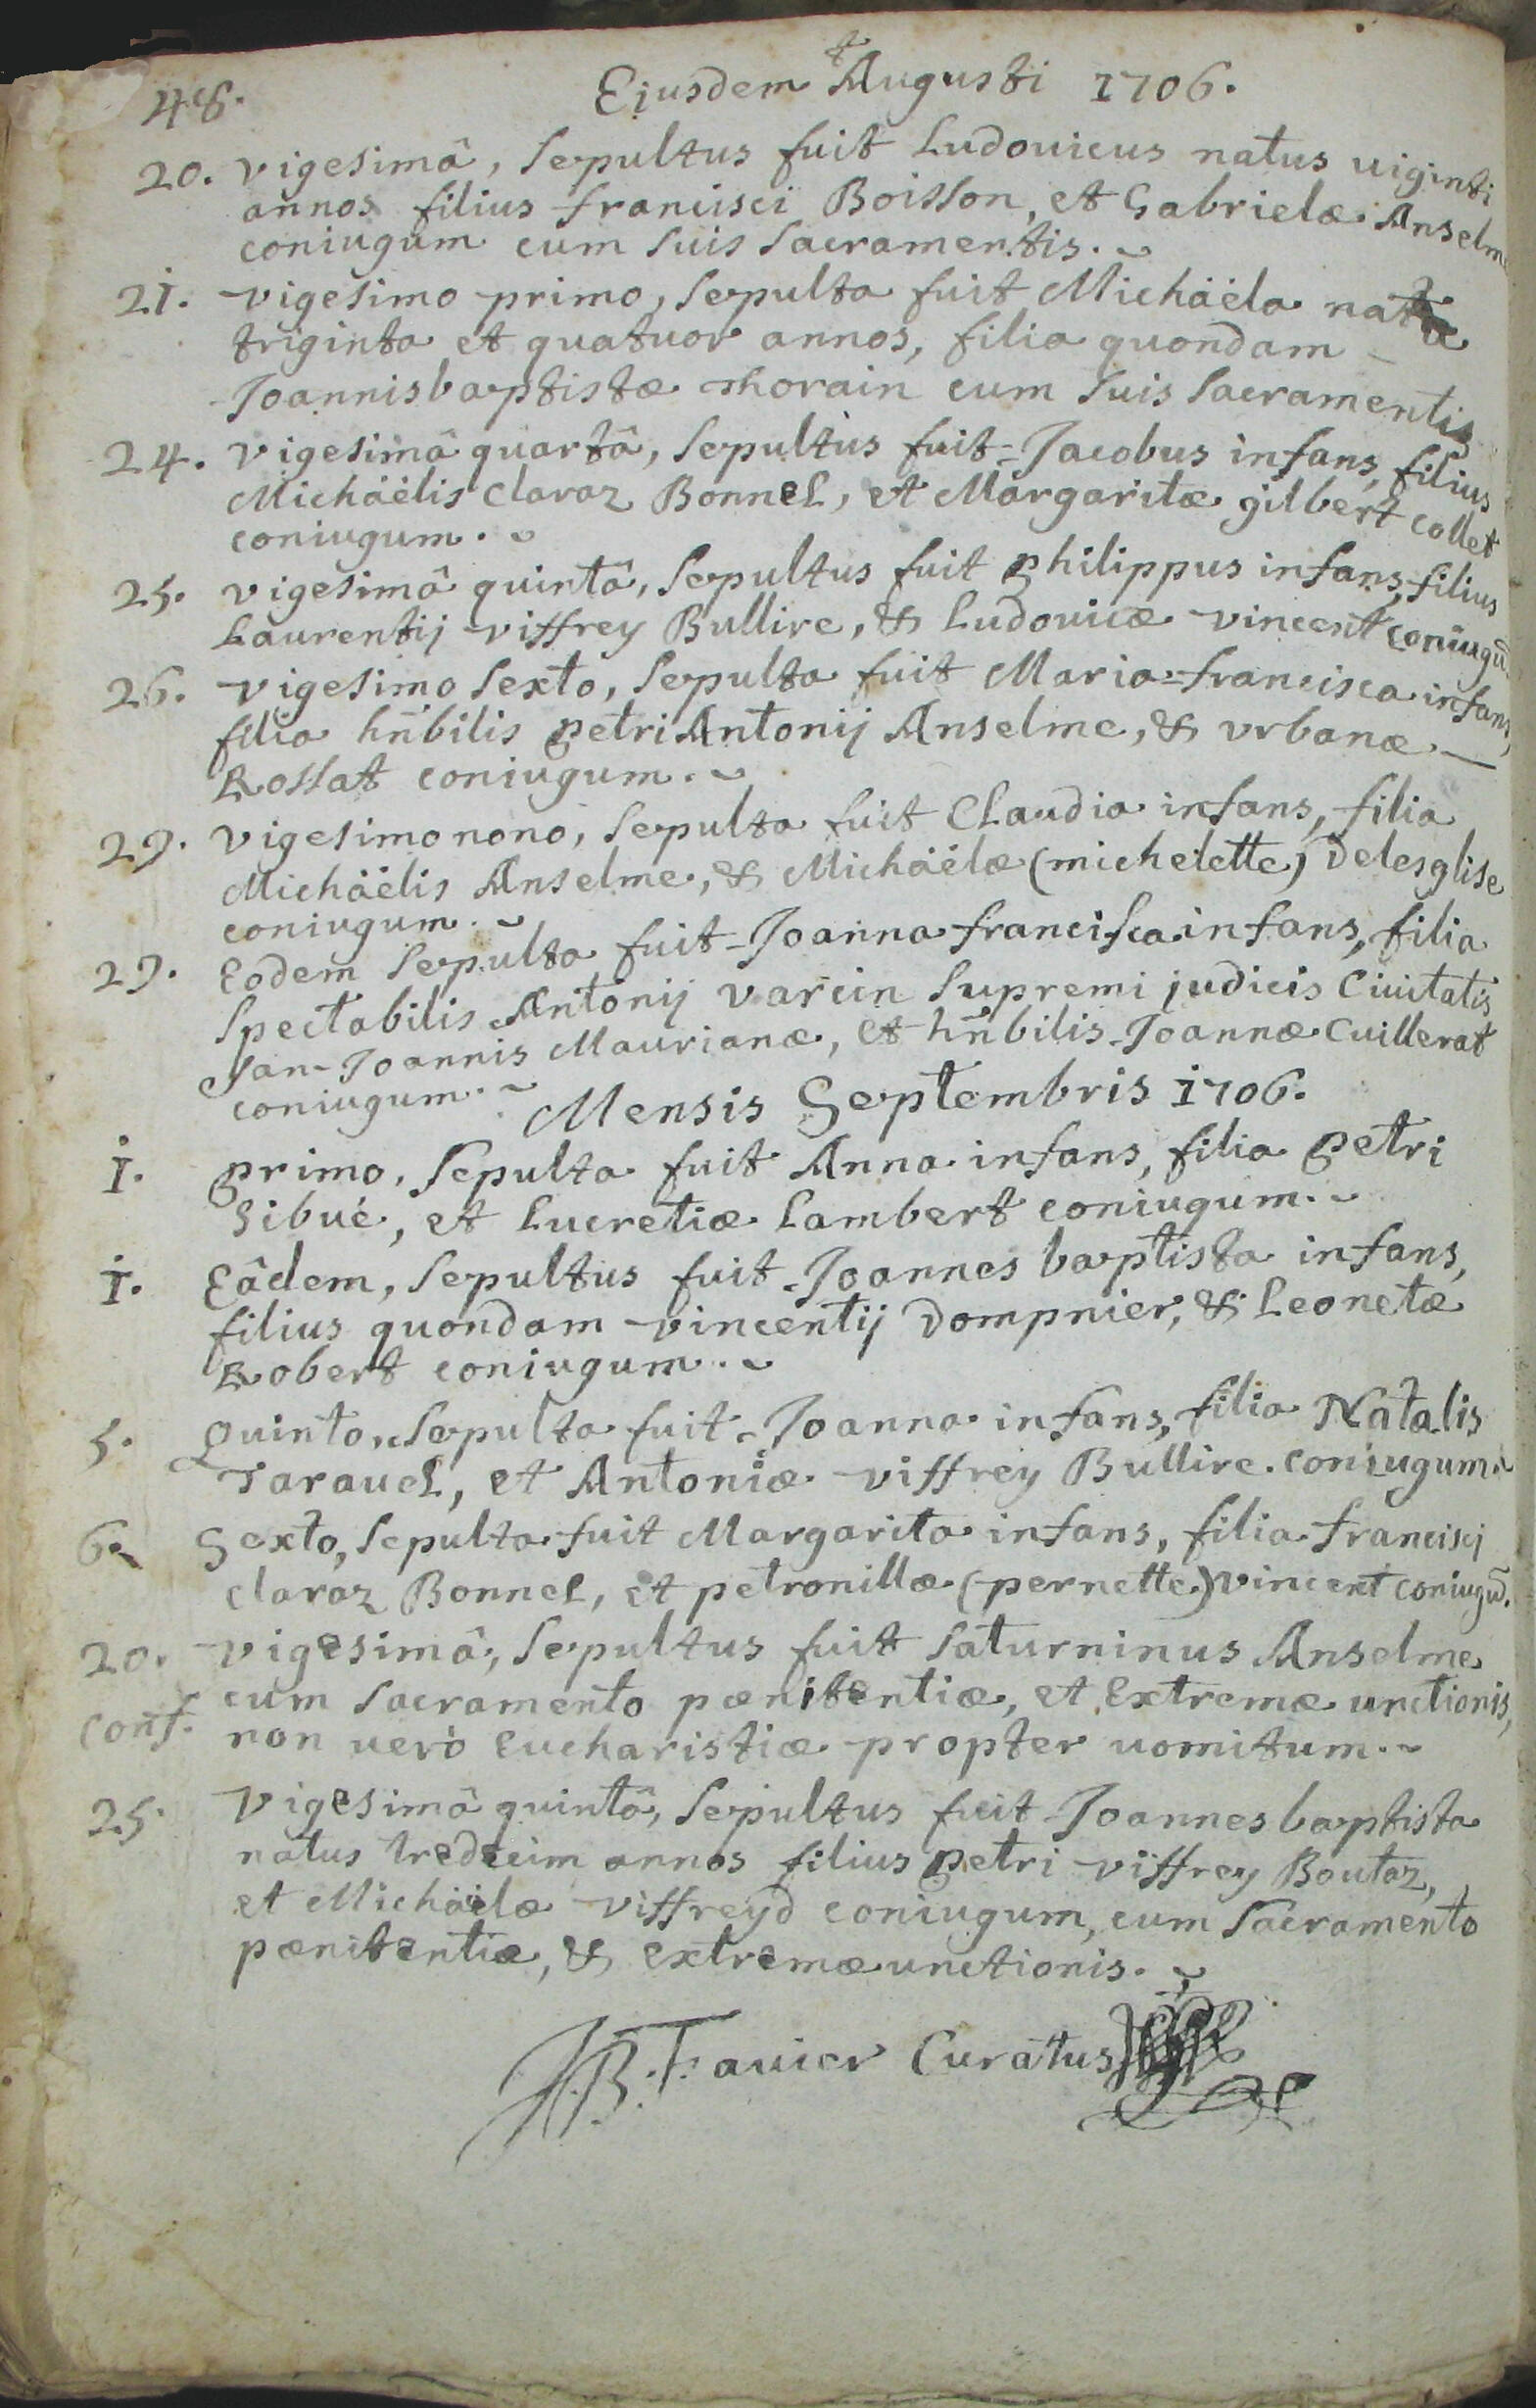 48. Ejusdem Augusti 1706.
20. vigesimâ, sepultus fuit Ludovicus natus uiginti
annos filius francisci Boisson, et Gabrielæ Anselme
coniugum cum suis sacramentis.
21. vigesimo primo, sepulta fuit Michäéla nata
triginta et quatuor annos, filia quondam
Joannisbaptistæ thorain cum suis sacramentis
24. vigesimâ quartâ, sepultus fuit Jacobus infans, filius
Michäélis Claraz Bonnel, et Margaritæ gilbert collet
coniugum.
25. vigesimâ quintâ, sepultus fuit philippus infans, filius
Laurentij viffrey Bullire, & Ludovicæ vincent coniugū.
26. vigesimo sexto, sepulta fuit Maria=francisca infans,
filia hñbilis petri Antonij Anselme, & vrbanæ
Rossat coniugum.
29. vigesimo nono, sepulta fuit Claudia infans, filia
Michäélis Anselme, & Michäélæ (michelette) Delesglise
coniugum.
29. Eodem sepulta fuit Joanna francisca infans, filia
spectabilis Antonij varcin supremi judicis Ciuitatis
san-Joannis Maurianæ, et hñbilis Joannæ Cuillerat
coniugum.
Mensis Septembris 1706.
1. primo, sepulta fuit Anna infans, filia petri
Sibué, et Lucretiæ Lambert coniugum.
1. Eâdem, sepultus fuit Joannes baptista infans,
filius quondam vincentij Dompnier, & Leonetæ
Robert coniugum.
5. Quinto, sepulta fuit Joanna infans, filia Natalis
Tarauel, et Antoniæ viffrey Bullire. coniugum.
6. Sexto, sepulta fuit Margarita infans, filia francisj
claraz Bonnel, et petronillæ (pernette) vincent coniugū.
20. vigesimâ, sepultus fuit saturninus Anselme
conf. cum sacramento pænitentiæ, et Extremæ unctionis,
non uerò Eucharistiæ propter uomitum.
25. vigesimâ quintâ, sepultus fuit Joannes baptista
natus tredecim annos filius petri viffrey Boutaz,
et Michäélæ viffreyd coniugum, cum sacramento
pænitentiæ, & extremæ unctionis.
JB. Fauier Curatus